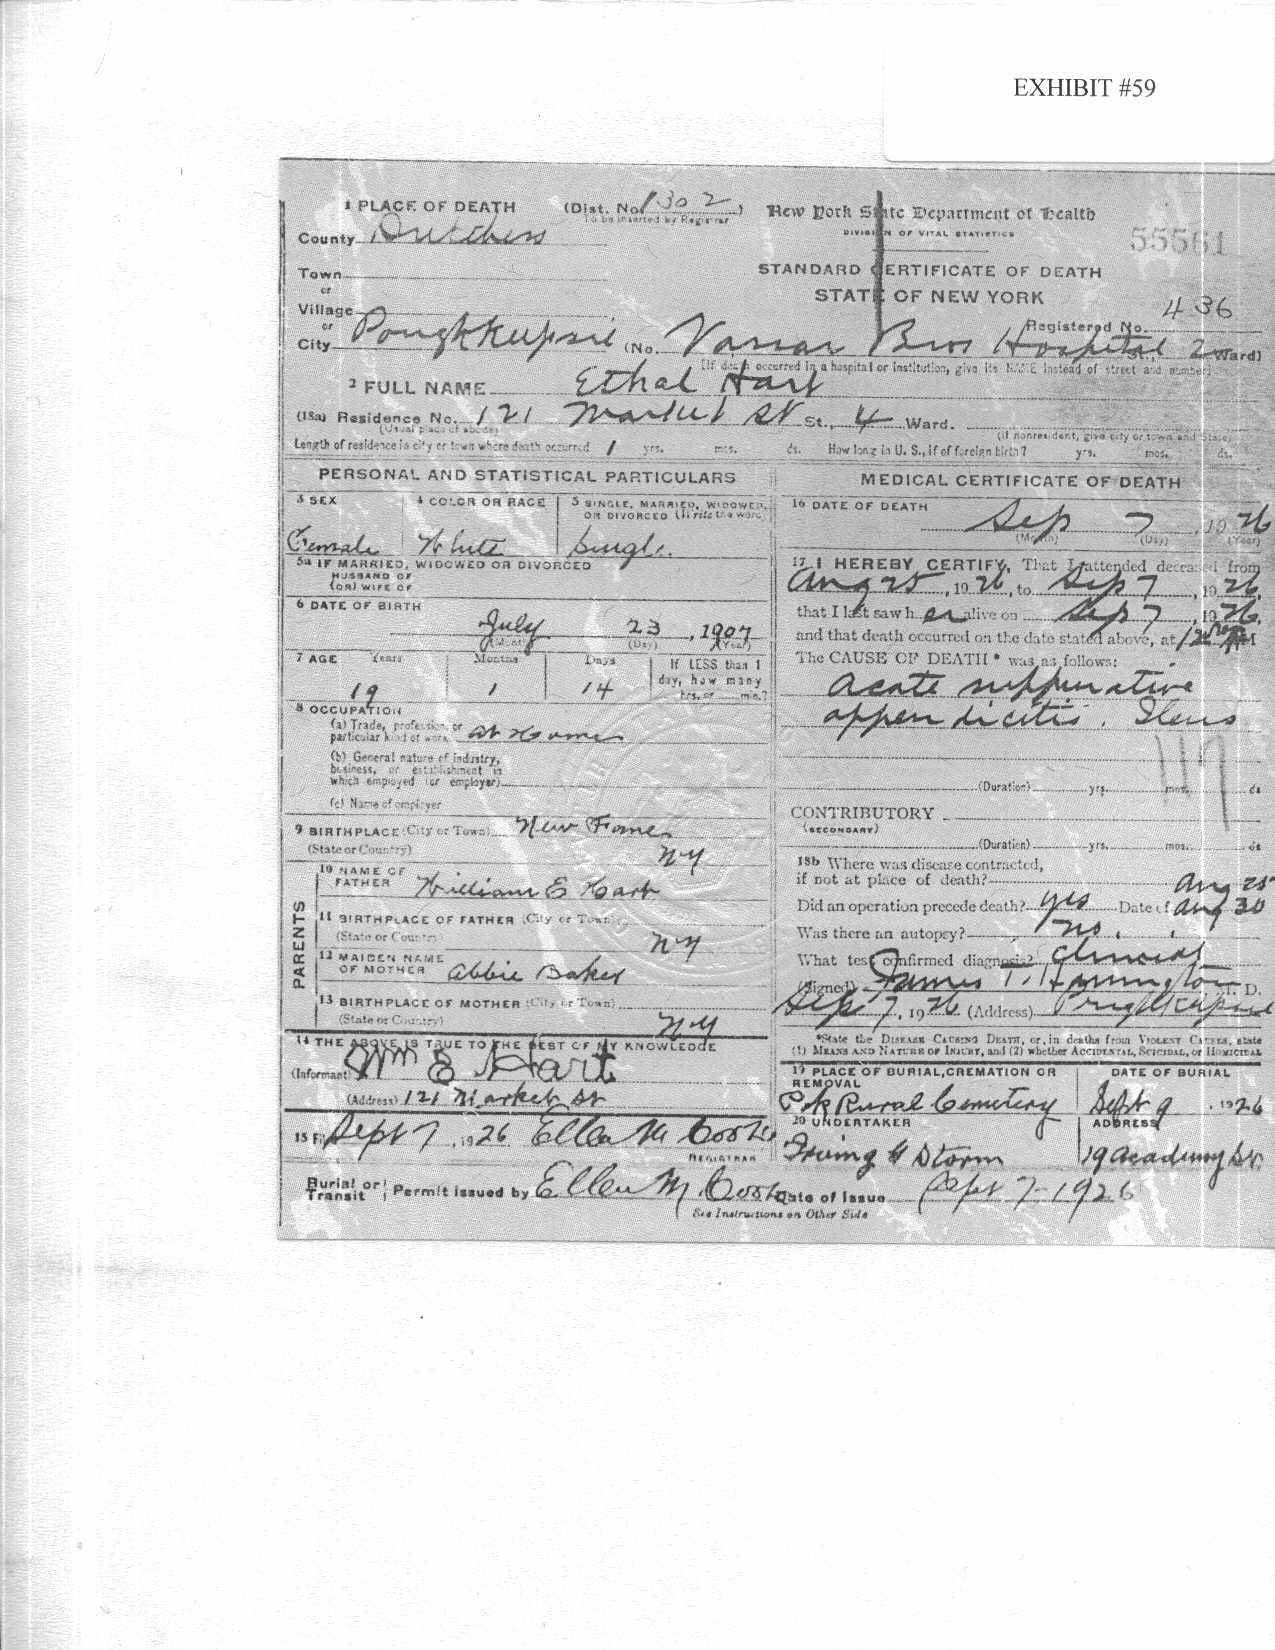 EXHIBIT #59
1 PLACE OF DEATH (Dist. No. 1302)
To be inserted by Registrar
New York State Department of Health
DIVISION OF VITAL STATISTICS
County Dutchess
55561
Town
STANDARD CERTIFICATE OF DEATH
or
STATE OF NEW YORK
Village
436
or
Registered No.
City Poughkeepsie (No. Vassar Bros Hospital 2 Ward)
(If death occurred in a hospital or institution, give its NAME instead of street and number)
2 FULL NAME Ethal Hart
(18a) Residence No. 121 Market St St., 4 Ward.
(Usual place of abode)
(If nonresident, give city or town and State)
Length of residence in city or town where death occurred 1 yrs. mos. ds. How long in U. S., if of foreign birth? yrs. mos. ds.
PERSONAL AND STATISTICAL PARTICULARS
3 SEX
Female
4 COLOR OR RACE
White
5 SINGLE, MARRIED, WIDOWED,
OR DIVORCED (Write the word)
Single
5a IF MARRIED, WIDOWED OR DIVORCED
HUSBAND OF
(OR) WIFE OF
6 DATE OF BIRTH
July 23, 1907
(Month) (Day) (Year)
7 AGE Years Months Days If LESS than 1
day, how many
hrs. or min.?
19 1 14
8 OCCUPATION
(a) Trade, profession, or
particular kind of work at Home
(b) General nature of industry,
business, or establishment in
which employed (or employer)
(c) Name of employer
9 BIRTHPLACE (City or Town) New
(State or Country) NY
PARENTS
10 NAME OF
FATHER William E Hart
11 BIRTHPLACE OF FATHER (City or Town)
(State or Country) NY
12 MAIDEN NAME
OF MOTHER Abbie Baker
13 BIRTHPLACE OF MOTHER (City or Town)
(State or Country) NY
14 THE ABOVE IS TRUE TO THE BEST OF MY KNOWLEDGE
(Informant) Wm E Hart
(Address) 121 Market St
15 Filed Sept 7, 1926 Ellen M
REGISTRAR
MEDICAL CERTIFICATE OF DEATH
16 DATE OF DEATH
Sep 7 1926
(Month) (Day) (Year)
17 I HEREBY CERTIFY, That I attended deceased from
Aug 25, 1926, to Sep 7, 1926,
that I last saw her alive on Sep 7, 1926,
and that death occurred on the date stated above, at 12 M
The CAUSE OF DEATH * was as follows:
Acute suppurative
appendicitis,
117
(Duration) yrs. mos. ds
CONTRIBUTORY
(SECONDARY)
(Duration) yrs. mos. ds
18b Where was disease contracted,
if not at place of death?
Did an operation precede death? yes Date of Aug 30
Was there an autopsy? no.
What test confirmed diagnosis? Clinical
(Signed) James T. Harrington M. D.
Sep 7, 1926 (Address) Poughkeepsie
*State the DISEASE CAUSING DEATH, or, in deaths from VIOLENT CAUSES, state
(1) MEANS AND NATURE OF INJURY, and (2) whether ACCIDENTAL, SUICIDAL, or HOMICIDAL
19 PLACE OF BURIAL, CREMATION OR
REMOVAL
Pok Rural Cemetery
DATE OF BURIAL
Sept 9, 1926
20 UNDERTAKER
Irving H Storm
ADDRESS
19 Academy St
Burial or
Transit Permit issued by Ellen M Date of Issue Sept 7-1926
See Instructions on Other Side